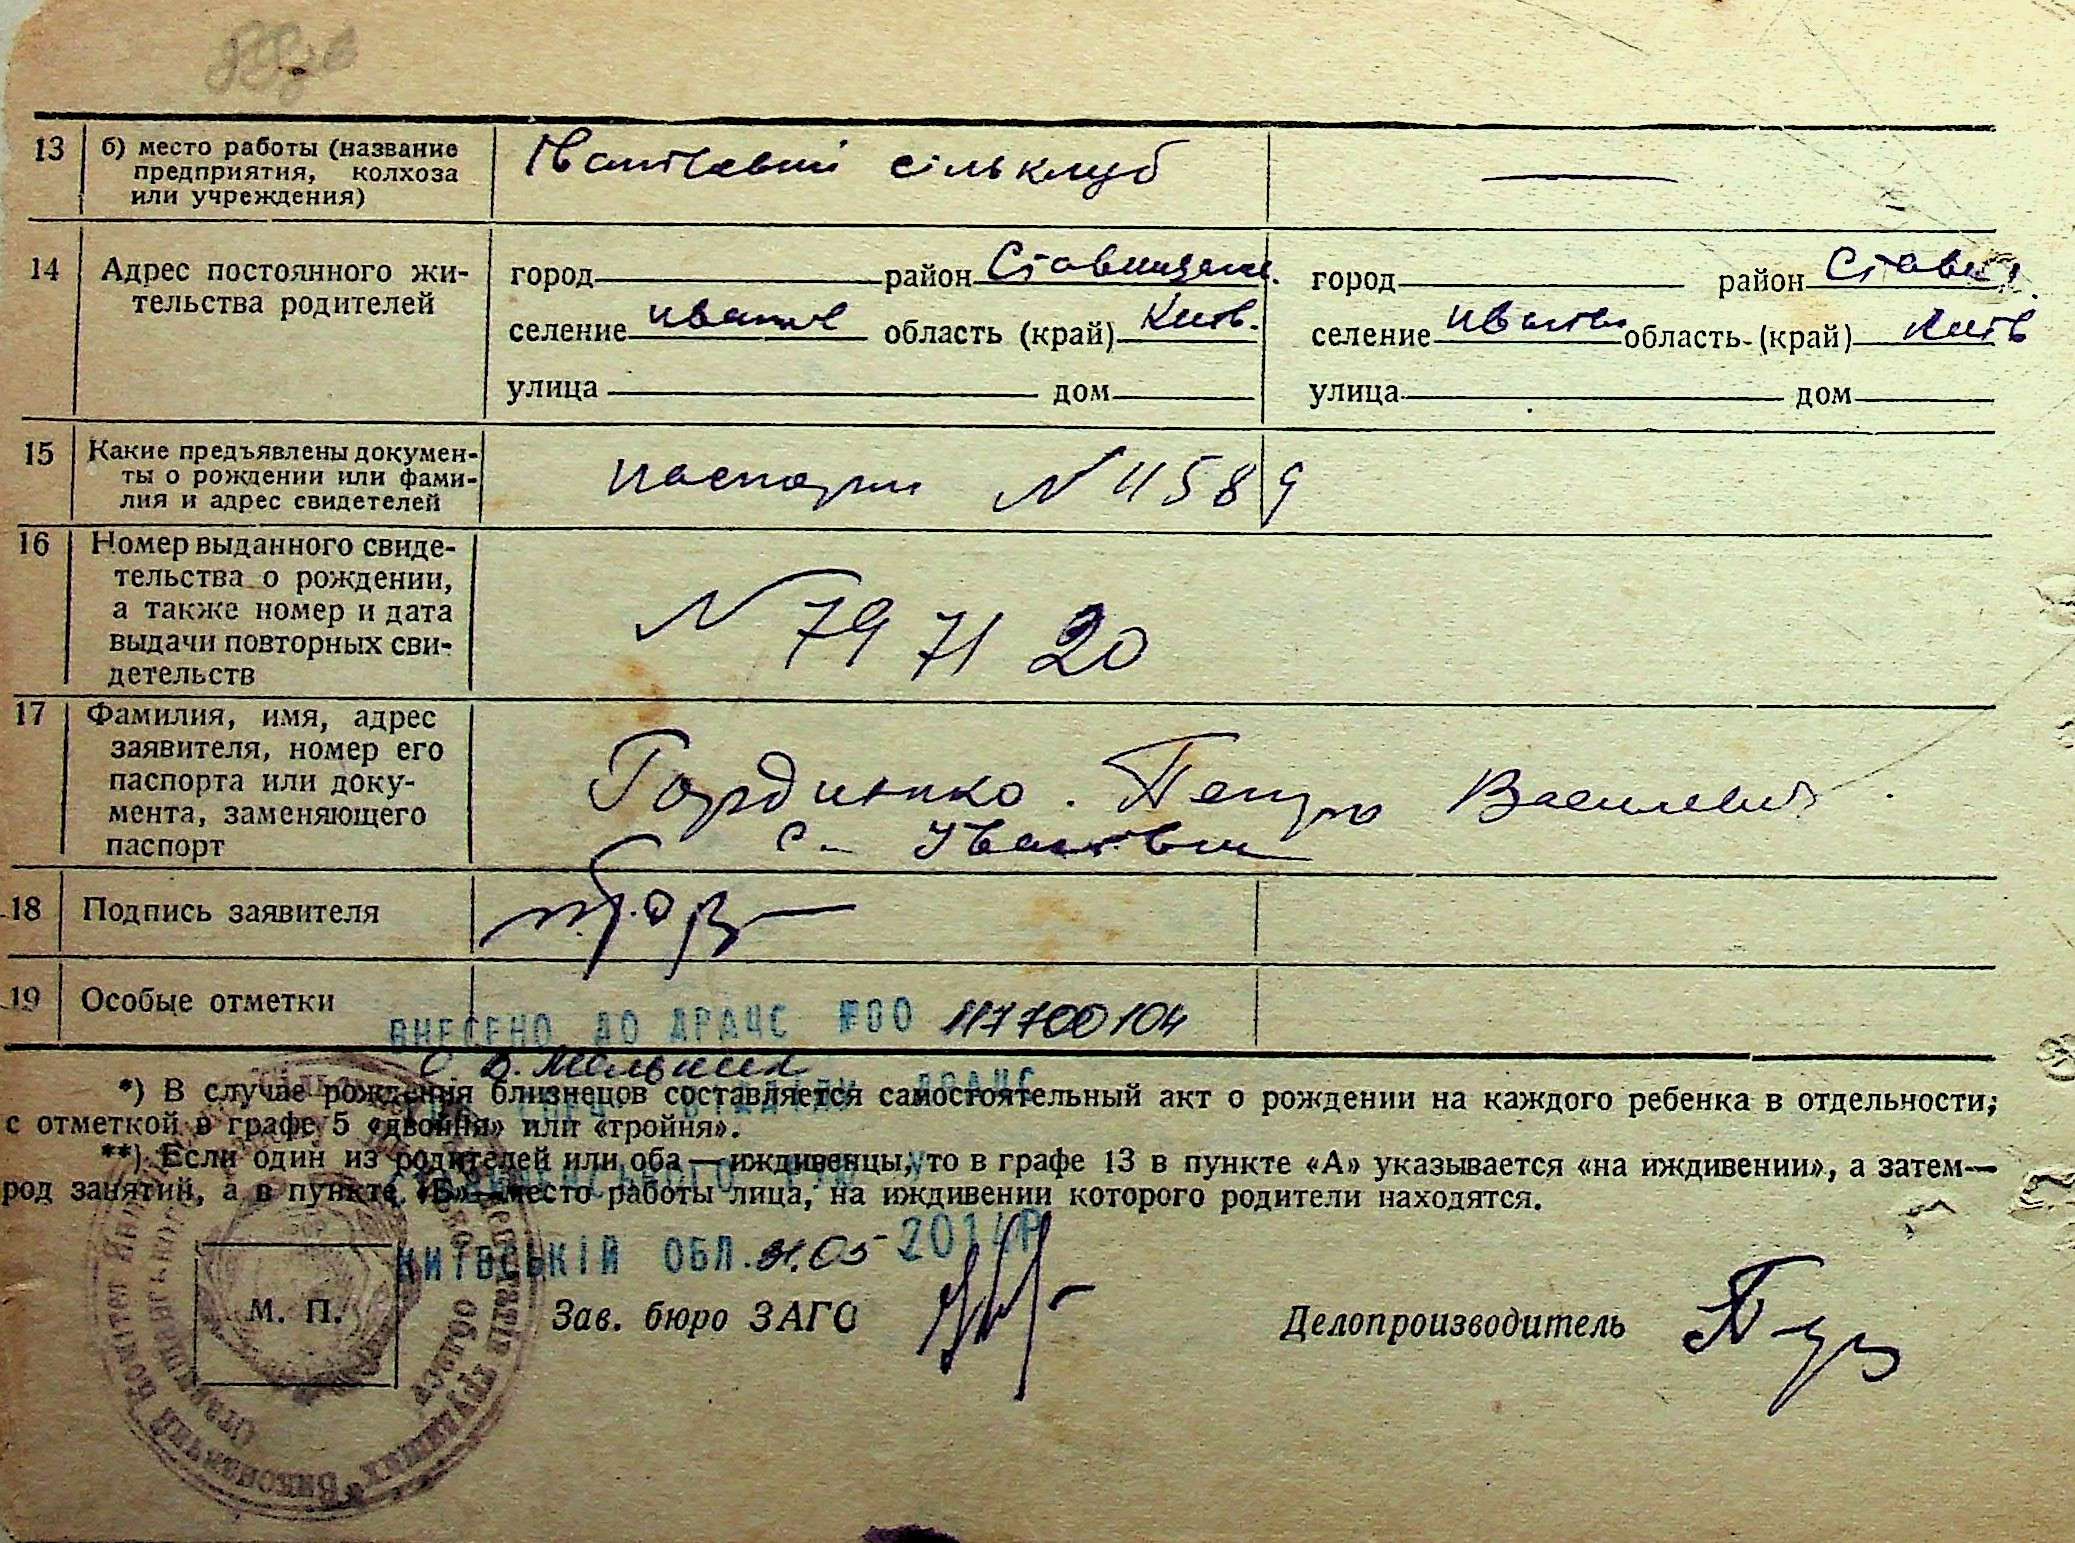 13 б) место работы (название
предприятия, колхоза
или учреждения)
сільклуб
14 Адрес постоянного жи-
тельства родителей
город район город район
селение область (край) Київ. селение область (край) Київ
улица дом улица дом
15 Какие предъявлены докумен-
ты о рождении или фами-
лия и адрес свидетелей
паспорти N 11589
16 Номер выданного свиде-
тельства о рождении,
а также номер и дата
выдачи повторных сви-
детельств
N 79 71 20
17 Фамилия, имя, адрес
заявителя, номер его
паспорта или доку-
мента, заменяющего
паспорт
Гординко. Петро Василевич
с.
18 Подпись заявителя
19 Особые отметки
ВНЕСЕНО ДО ДРАЦС №00 117700104
*) В случае рождения близнецов составляется самостоятельный акт о рождении на каждого ребенка в отдельности;
с отметкой в графе 5 «двойня» или «тройня».
**) Если один из родителей или оба — иждивенцы, то в графе 13 в пункте «А» указывается «на иждивении», а затем—
род занятий, а в пункте «Б»—место работы лица, на иждивении которого родители находятся.
КИЇВСЬКІЙ ОБЛ. 05 2014Р
М. П.
Зав. бюро ЗАГС Делопроизводитель